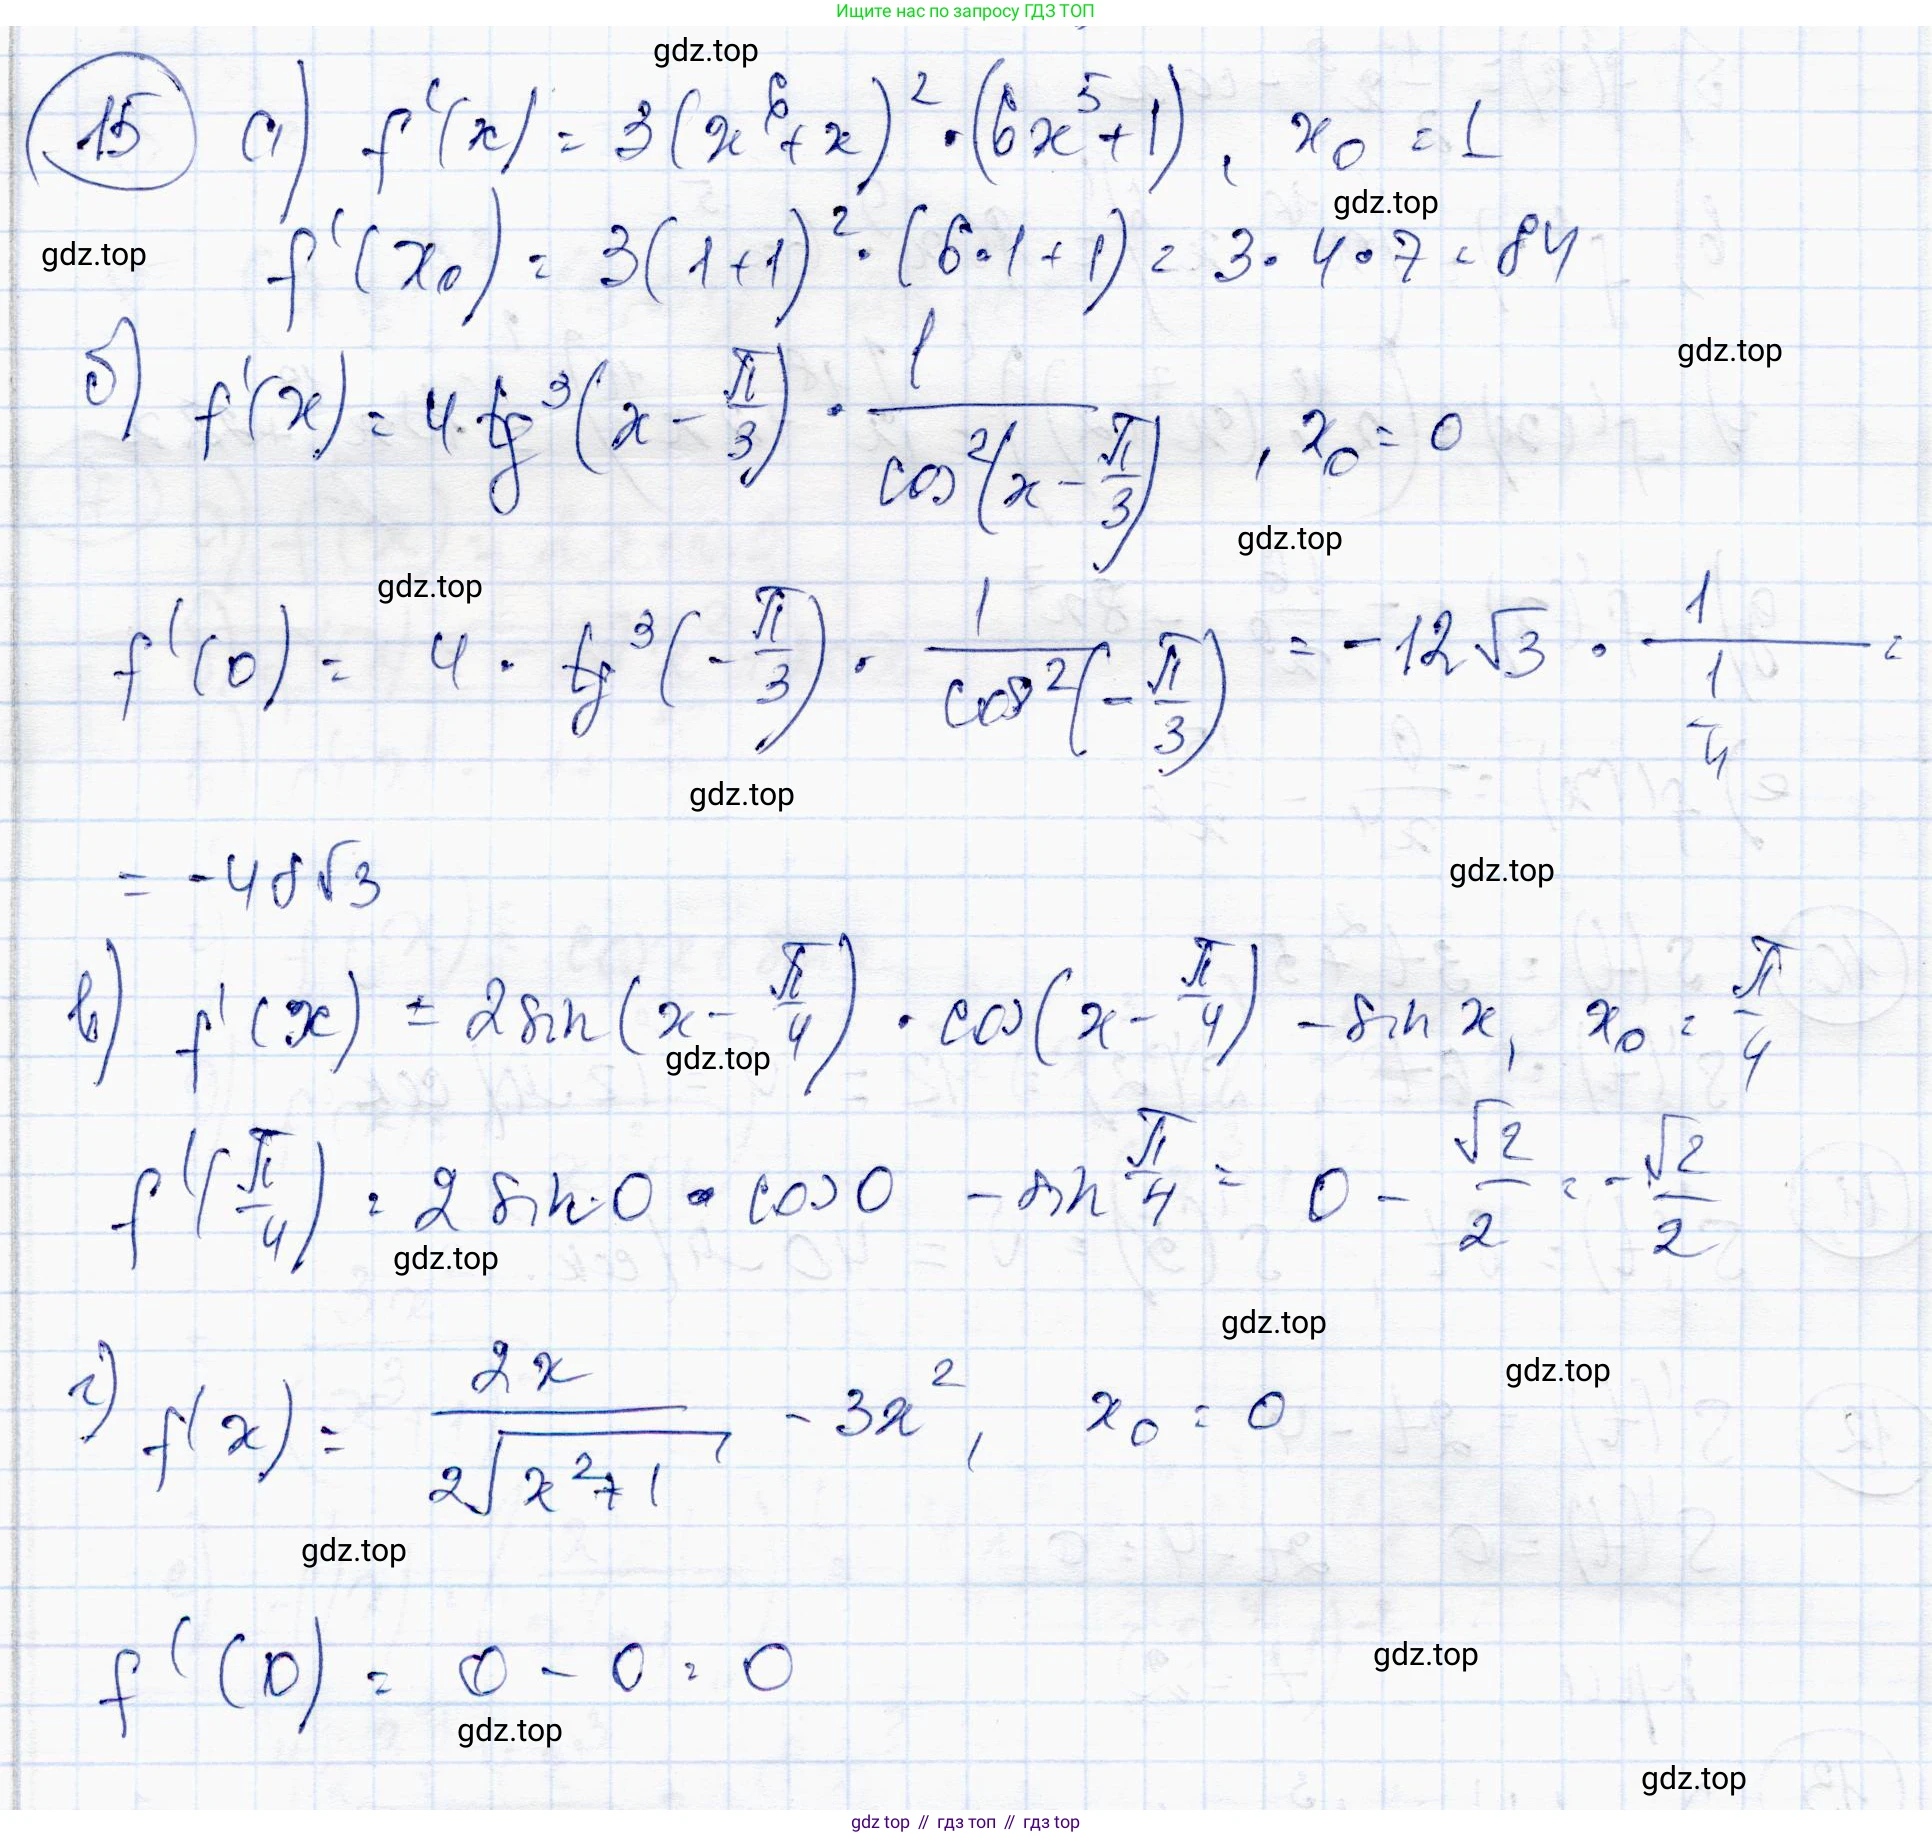 Ищите нас по запросу ГДЗ ТОП
gdz.top
15 а) f'(x) = 3(x⁶+x)² · (6x⁵+1), x₀ = 1
gdz.top
gdz.top
f'(x₀) = 3(1+1)² · (6·1+1) = 3·4·7 = 84
gdz.top
б) f'(x) = 4·tg³(x - π/3) · 1/cos²(x - π/3), x₀ = 0
gdz.top
gdz.top
f'(0) = 4 · tg³(-π/3) · 1/cos²(-π/3) = -12√3 · 1/(1/4) =
gdz.top
gdz.top
= -48√3
в) f'(x) = 2sin(x - π/4) · cos(x - π/4) - sin x, x₀ = π/4
gdz.top
f'(π/4) = 2 sin·0 · cos 0 - sin π/4 = 0 - √2/2 = -√2/2
gdz.top
gdz.top
gdz.top
г) f'(x) = 2x/(2√(x²+1)) - 3x², x₀ = 0
gdz.top
f'(0) = 0 - 0 = 0
gdz.top
gdz.top
gdz.top
gdz top // гдз топ // гдз top